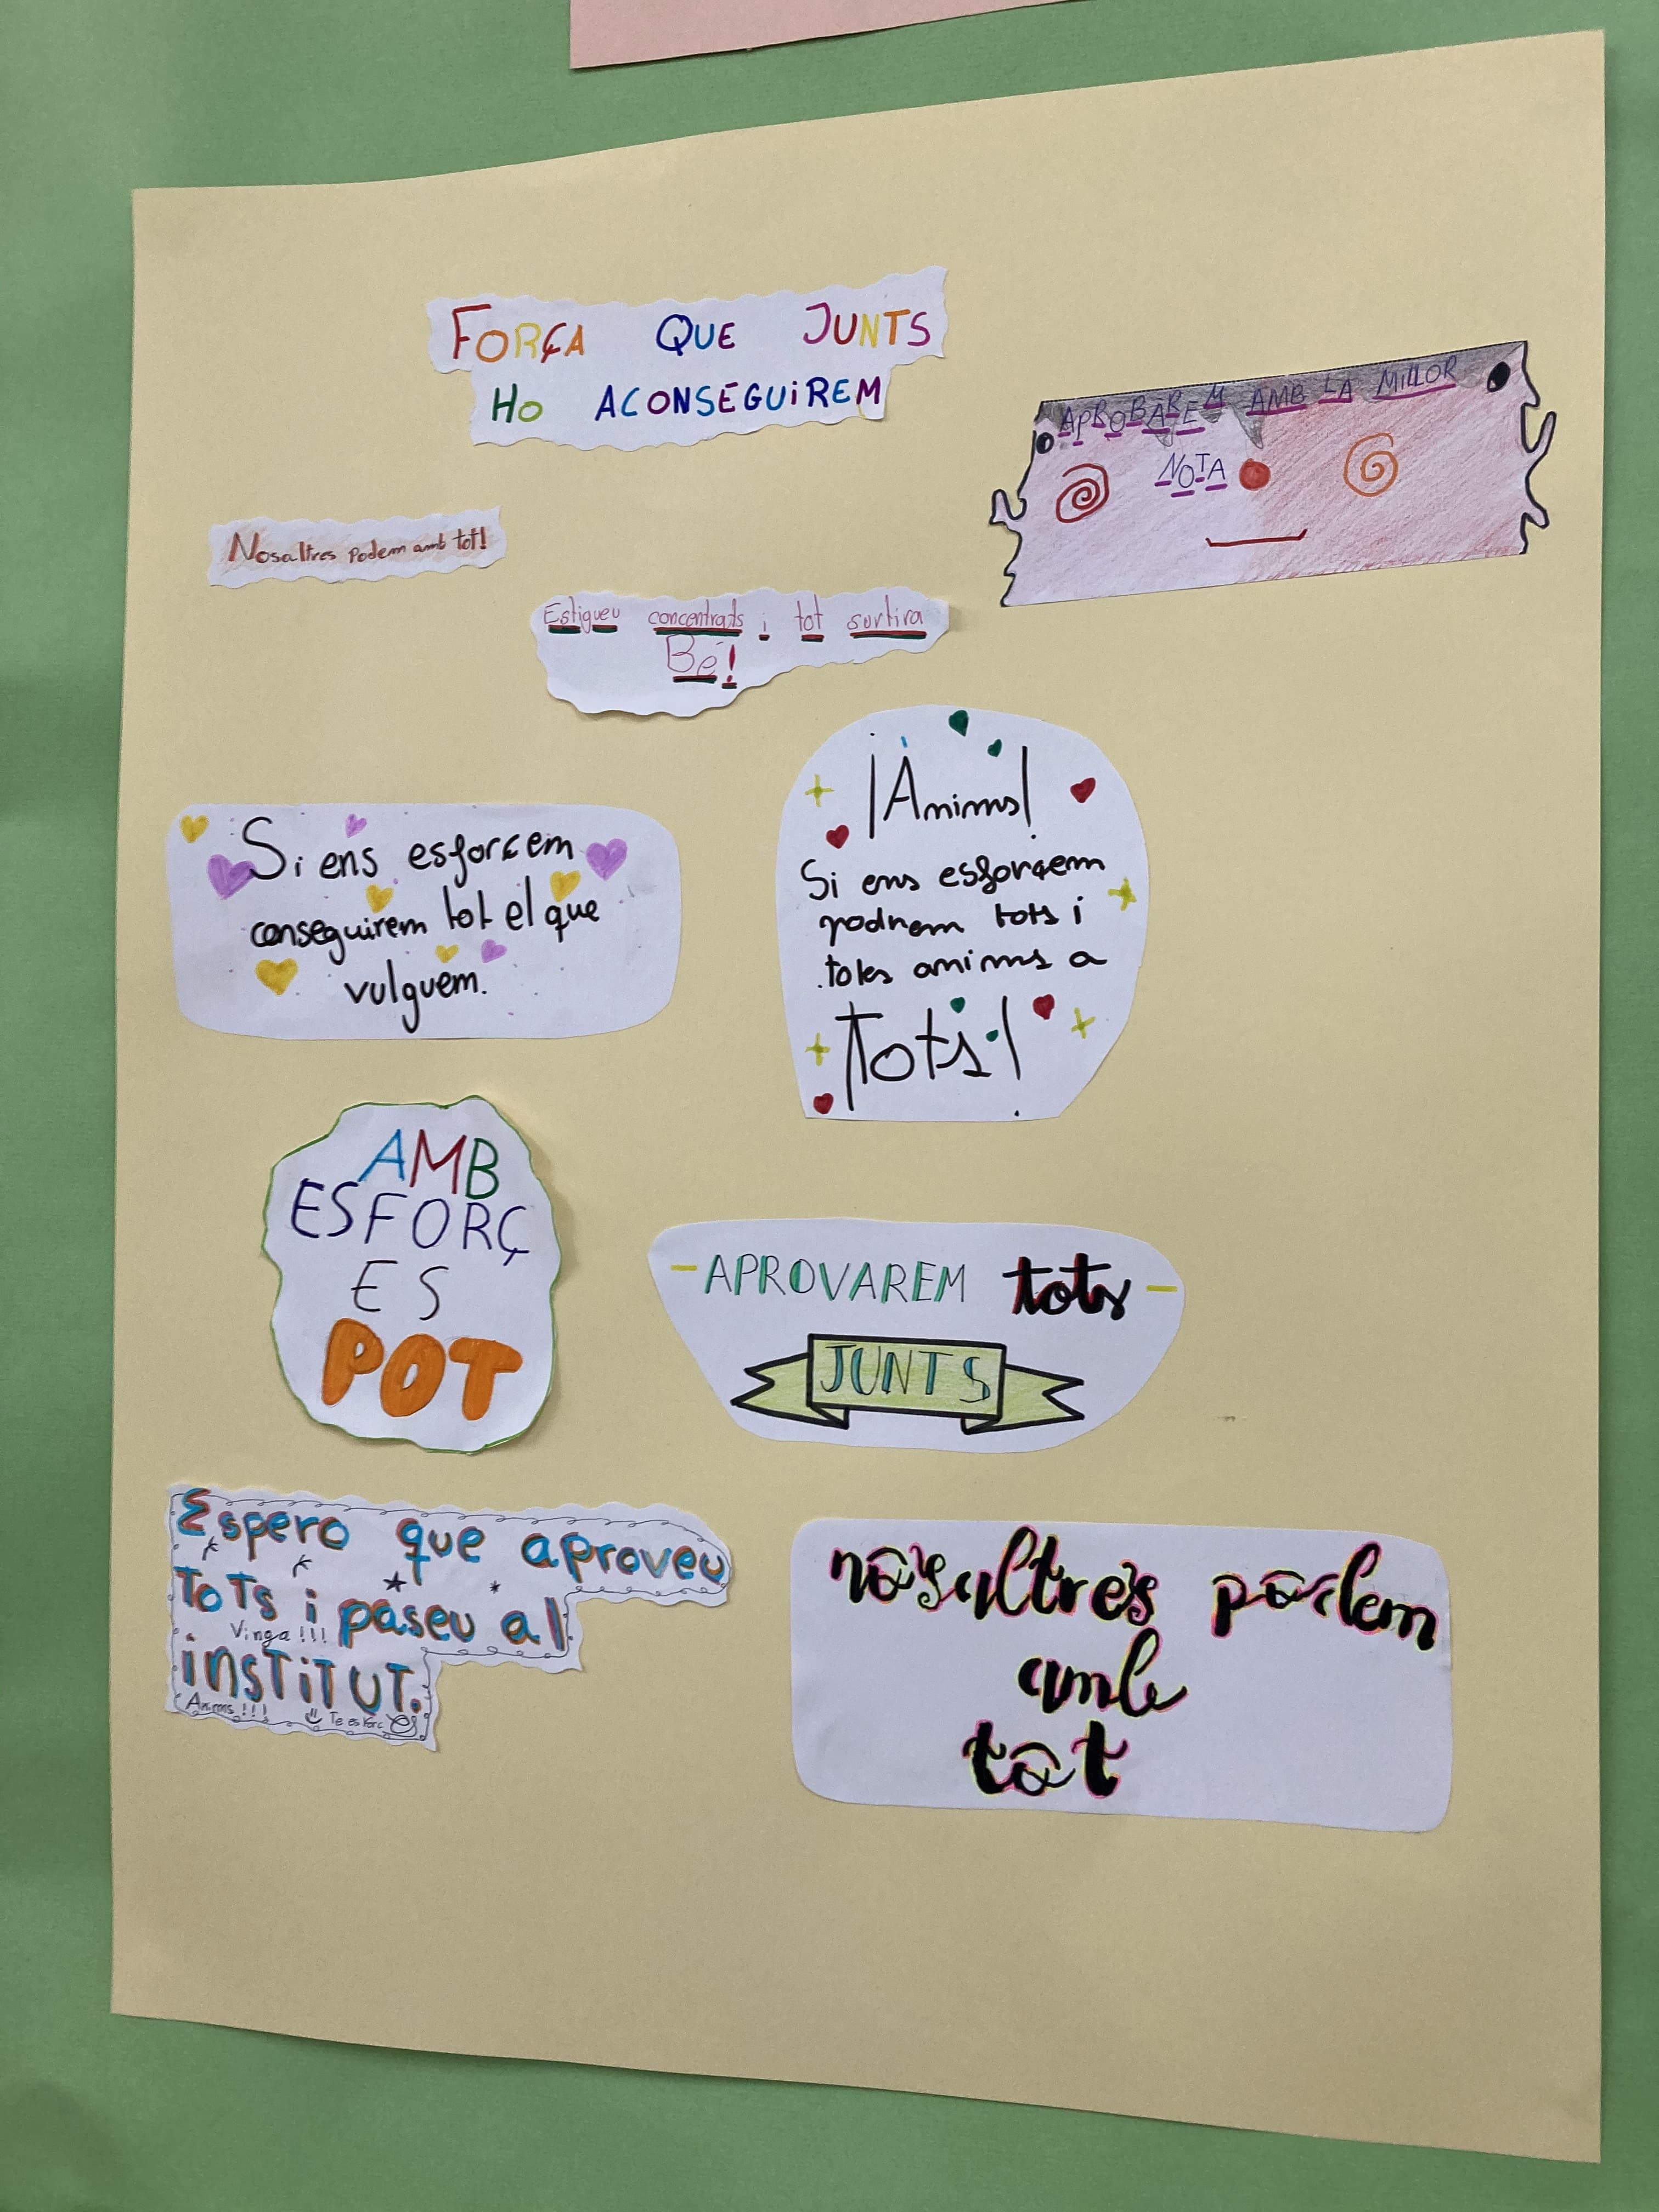 FORÇA QUE JUNTS
HO ACONSEGUiREM
APROBAREM AMB LA MILLOR
NOTA
Nosaltres podem amb tot!
Estigueu concentrats i tot surtira
Bé!
¡Ànims!
Si ens esforçem
podrem tots i
totes anims a
Tots!
Si ens esforçem
conseguirem tot el que
vulguem.
AMB
ESFORÇ
ES
POT
-APROVAREM tots-
JUNTS
Espero que aproveu
ToTs i paseu al
Vinga!!!
insTiTUT.
Anims!!!
nosaltres podem
amb
tot